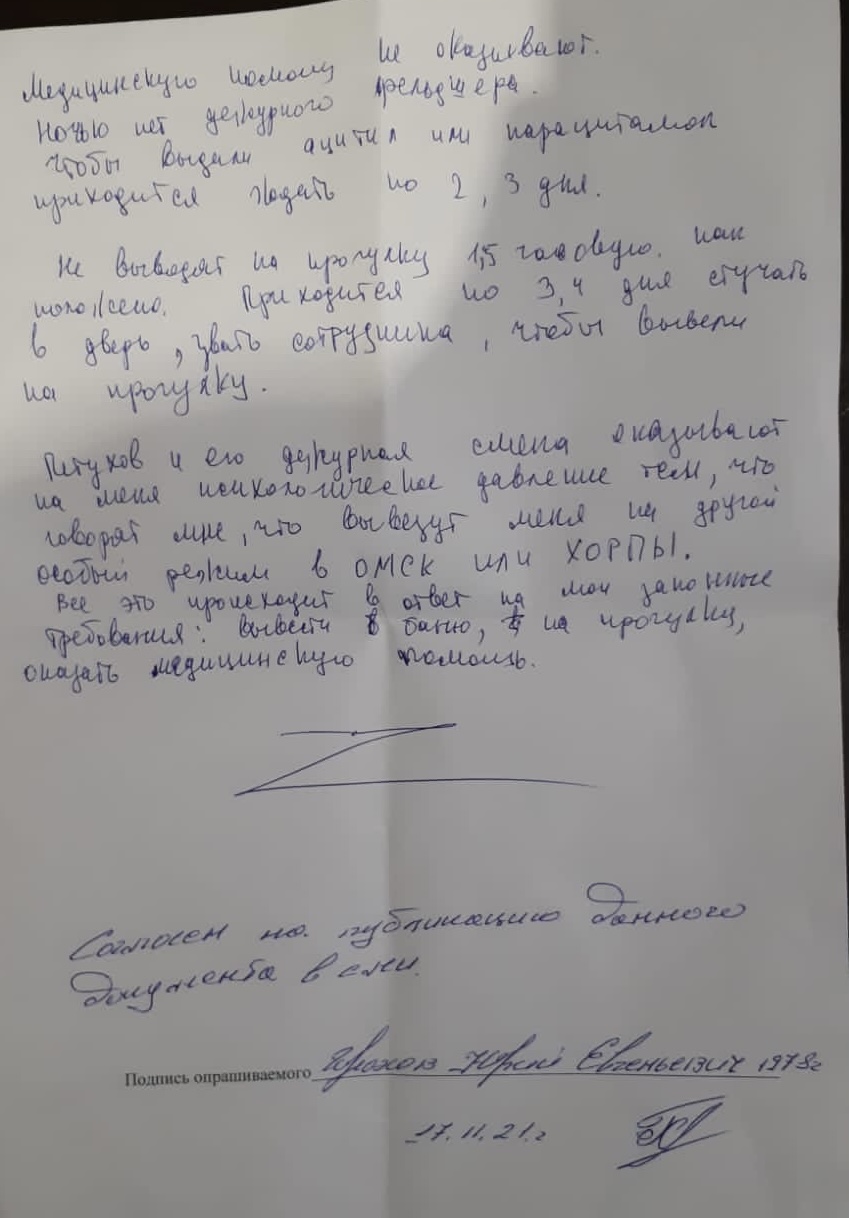 Медицинскую помощь не оказывают.
Ночью нет дежурного фельдшера.
Чтобы выдали ацитил или парацитамол
приходится ждать по 2, 3 дня.
Не выводят на прогулку 1,5 часовую. как
положено. Приходится по 3, 4 дня стучать
в дверь, звать сотрудника, чтобы вывели
на прогулку.
Петухов и его дежурная смена оказывают
на меня психологическое давление тем, что
говорят мне, что вывезут меня на другой
особый режим в ОМСК или ХОРПЫ.
Все это происходит в ответ на мои законные
требования: вывести в баню, на прогулку,
оказать медицинскую помощь.
Согласен на публикацию данного
документа в сми.
Подпись опрашиваемого Юрий Евгеньевич 1978г
17.11.21.г